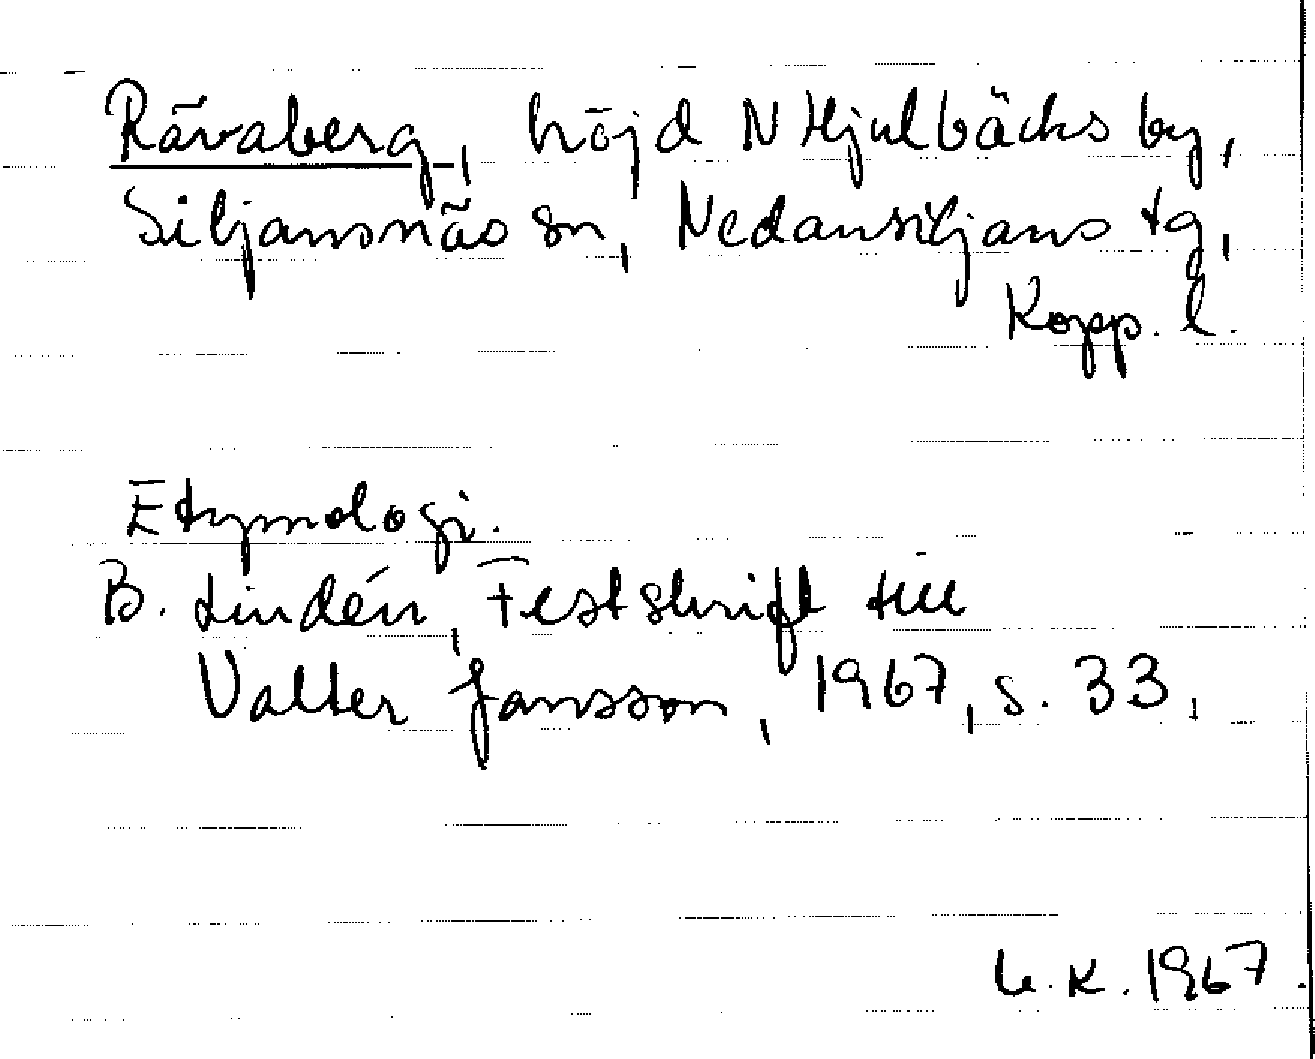 Rävaberg, höjd N Hjulbäcks by,
Siljansnäs sn, Nedansiljans tg,
Kopp. l.
Etymologi.
B. Lindén, Festskrift till
Valter Jansson, 1967, s. 33.
K. 1967.